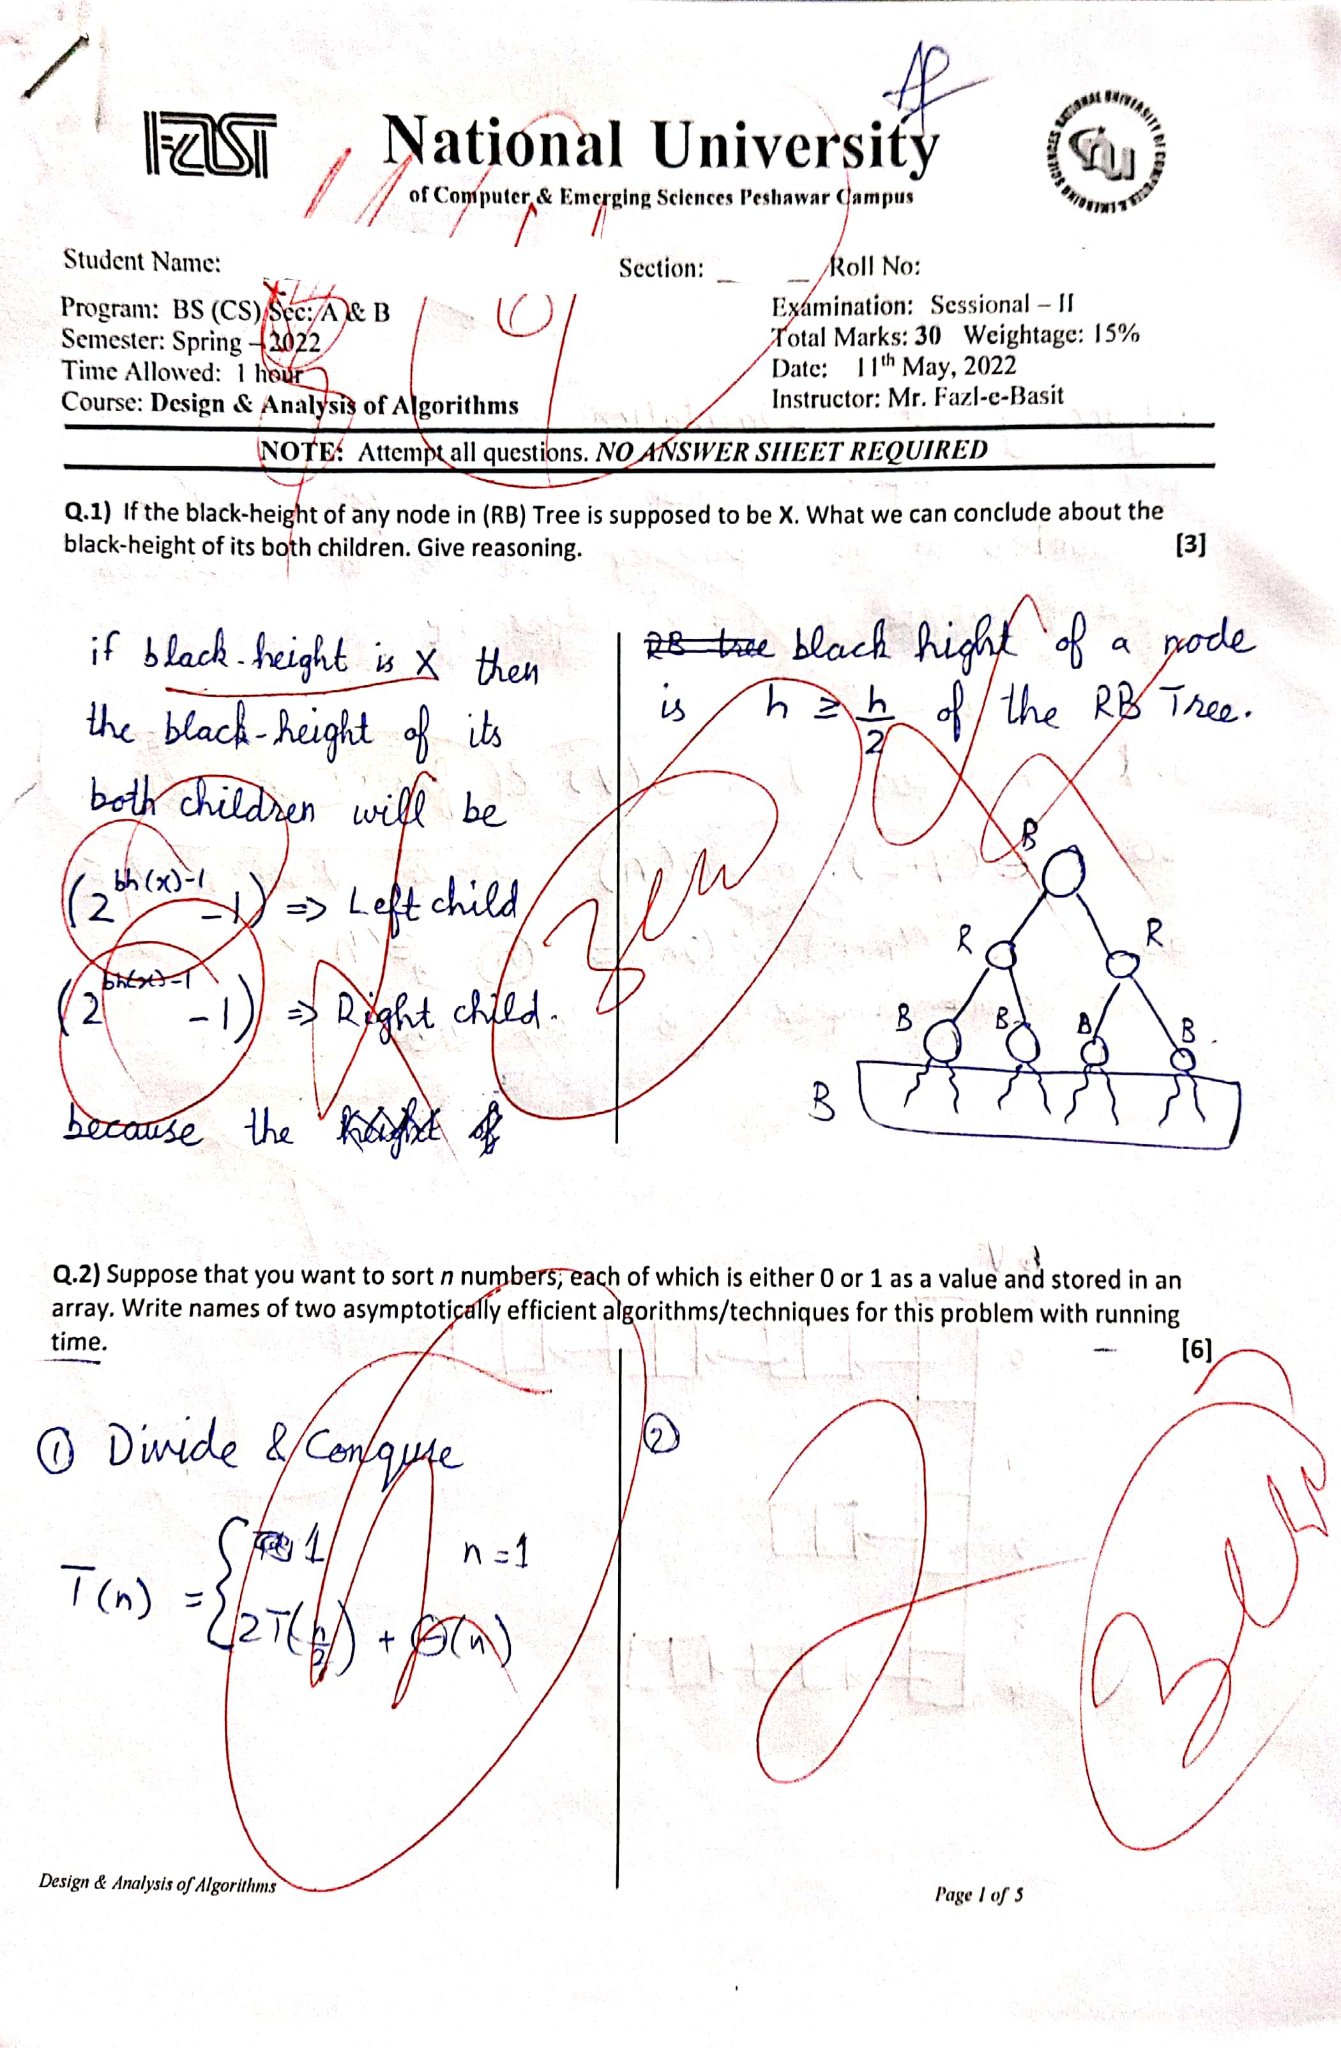 FAST
National University
of Computer & Emerging Sciences Peshawar Campus
Student Name:
Section: _ _ Roll No:
Program: BS (CS) Sec: A & B
Examination: Sessional – II
Semester: Spring – 2022
Total Marks: 30 Weightage: 15%
Time Allowed: 1 hour
Date: 11th May, 2022
Course: Design & Analysis of Algorithms
Instructor: Mr. Fazl-e-Basit
NOTE: Attempt all questions. NO ANSWER SHEET REQUIRED
Q.1) If the black-height of any node in (RB) Tree is supposed to be X. What we can conclude about the
black-height of its both children. Give reasoning. [3]
if black-height is X then
the black-height of its
both children will be
(2^bh(x)-1 -1) => Left child
(2^bh(x)-1 -1) => Right child.
because the height of
RB tree black hight of a node
is h ≥ h/2 of the RB Tree.
B
R R
B B B B
B
Zero
Q.2) Suppose that you want to sort n numbers, each of which is either 0 or 1 as a value and stored in an
array. Write names of two asymptotically efficient algorithms/techniques for this problem with running
time. [6]
① Divide & Conqure
T(n) = { 1 n=1
2T(n/2) + Θ(n)
②
Zero
Design & Analysis of Algorithms
Page 1 of 5